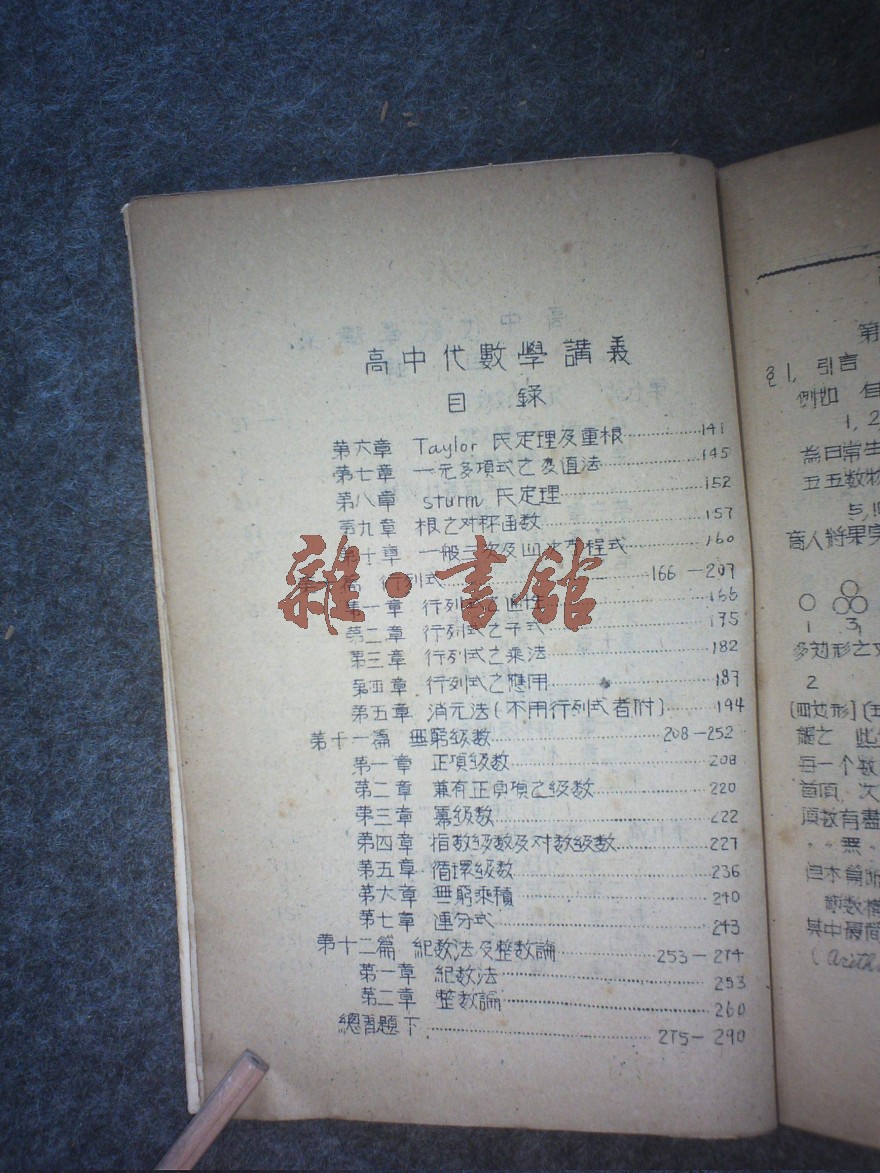 高中代數學講義
目錄
第六章 Taylor 氏定理及重根 141
第七章 一元多項式之变值法 145
第八章 sturm 氏定理 152
第九章 根之对称函数 157
第十章 一般三次及四次方程式 160
第十篇 行列式 166-207
第一章 行列式之通性 166
第二章 行列式之子式 175
第三章 行列式之乘法 182
第四章 行列式之應用 187
第五章 消元法(不用行列式者附) 194
第十一篇 無窮級数 208-252
第一章 正項級数 208
第二章 兼有正負項之級数 220
第三章 冪級数 222
第四章 指数級数及对数級数 227
第五章 循環級数 236
第六章 無窮乘積 240
第七章 連分式 243
第十二篇 紀数法及整数論 253-274
第一章 紀数法 253
第二章 整数論 260
總習題下 275-290
雜·書館
第
§1, 引言
例如
1, 2
為日常生
五五数物
商人將果実
1 3
多边形之
2
(四边形)
每一个数
首項, 次
項数有盡
無
其中最簡